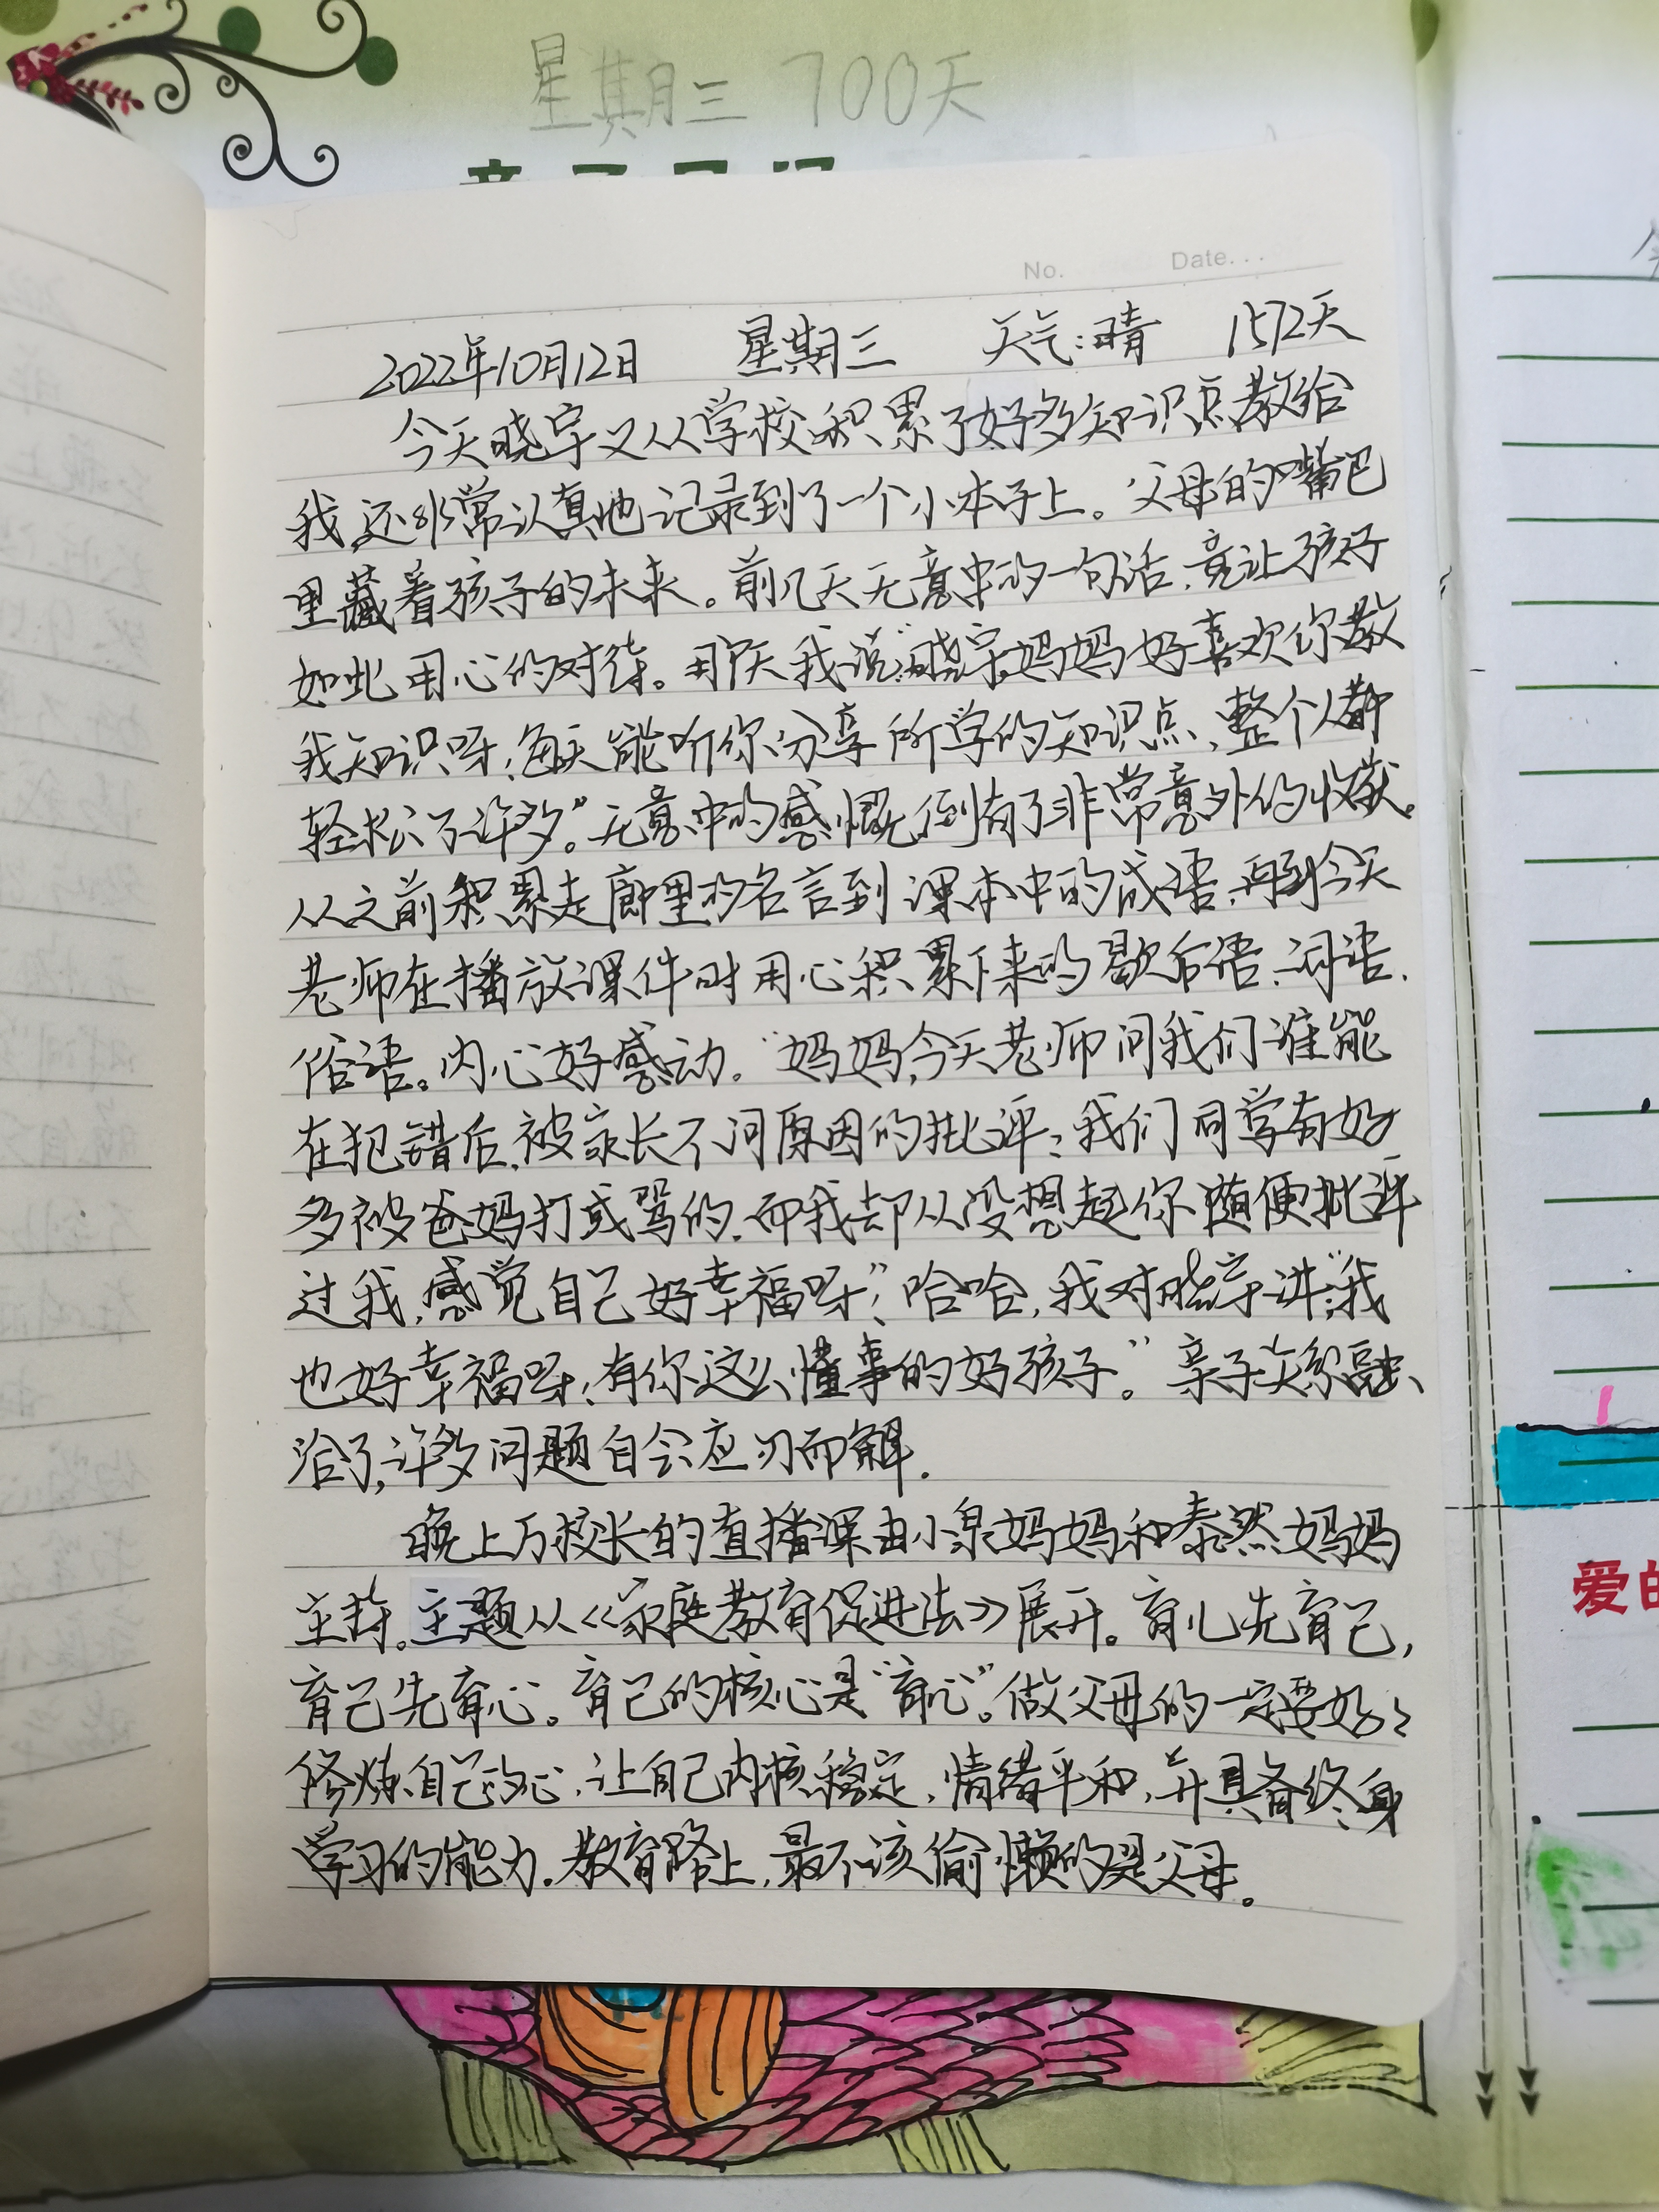 星期三 700天
No. Date...
2022年10月12日 星期三 天气:晴 1572天
今天晓宇又从学校积累了好多知识点教给
我,还非常认真地记录到了一个小本子上。父母的嘴巴
里藏着孩子的未来。前几天无意中的一句话,竟让孩子
如此用心的对待。那天我说:“晓宇,妈妈好喜欢你教
我知识呀,每天能听你分享所学的知识点,整个人都
轻松了许多。”无意中的感慨,倒有了非常意外的收获。
从之前积累走廊里的名言到课本中的成语,再到今天
老师在播放课件时用心积累下来的歇后语、词语、
俗语。内心好感动。“妈妈,今天老师问我们谁能
在犯错后,被家长不问原因的批评,我们同学有好
多被爸妈打或骂的,而我却从没想起你随便批评
过我,感觉自己好幸福呀”,哈哈,我对晓宇讲:“我
也好幸福呀,有你这么懂事的好孩子。”亲子关系融
洽了,许多问题自会应刃而解.
晚上万校长的直播课由小泉妈妈和泰然妈妈
主持。主题从《家庭教育促进法》展开。育儿先育己,
育己先育心。育己的核心是“育心”。做父母的一定要好好
修炼自己的心,让自己内核稳定,情绪平和,并具备终身
学习的能力.教育路上,最不该偷懒的是父母。
爱的